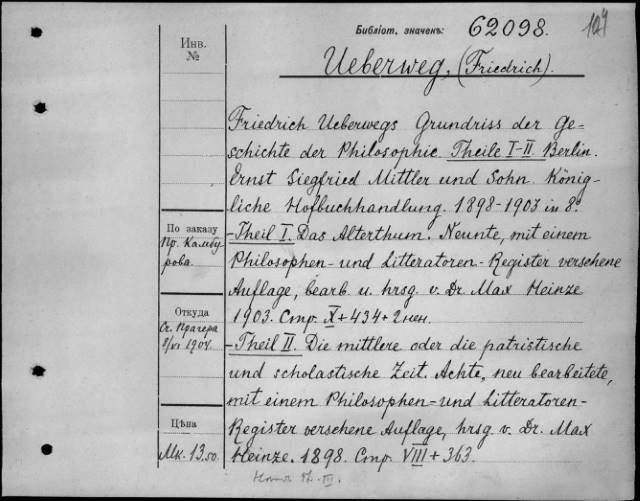 Библіот. значекъ: 62098. 104
Инв.
№
Ueberweg, (Friedrich).
Friedrich Ueberwegs Grundriss der Ge-
schichte der Philosophie. Theile I-II. Berlin.
Ernst Siegfried Mittler und Sohn. König-
liche Hofbuchhandlung. 1898-1903 in 8º.
По заказу
Пр. Камбу-
рова.
-Theil I. Das Alterthum. Neunte, mit einem
Philosophen- und Litteratoren-Register versehene
Auflage, bearb. u. hrsg. v. Dr. Max Heinze
1903. Стр. X+434+2 нен.
Откуда
Ст. Прагера
8/VI 1904.
-Theil II. Die mittlere oder die patristische
und scholastische Zeit. Achte, neu bearbeitete,
mit einem Philosophen- und Litteratoren-
Register versehene Auflage, hrsg. v. Dr. Max
Heinze. 1898. Стр. VIII+363.
Цѣна
Мк. 13.50.